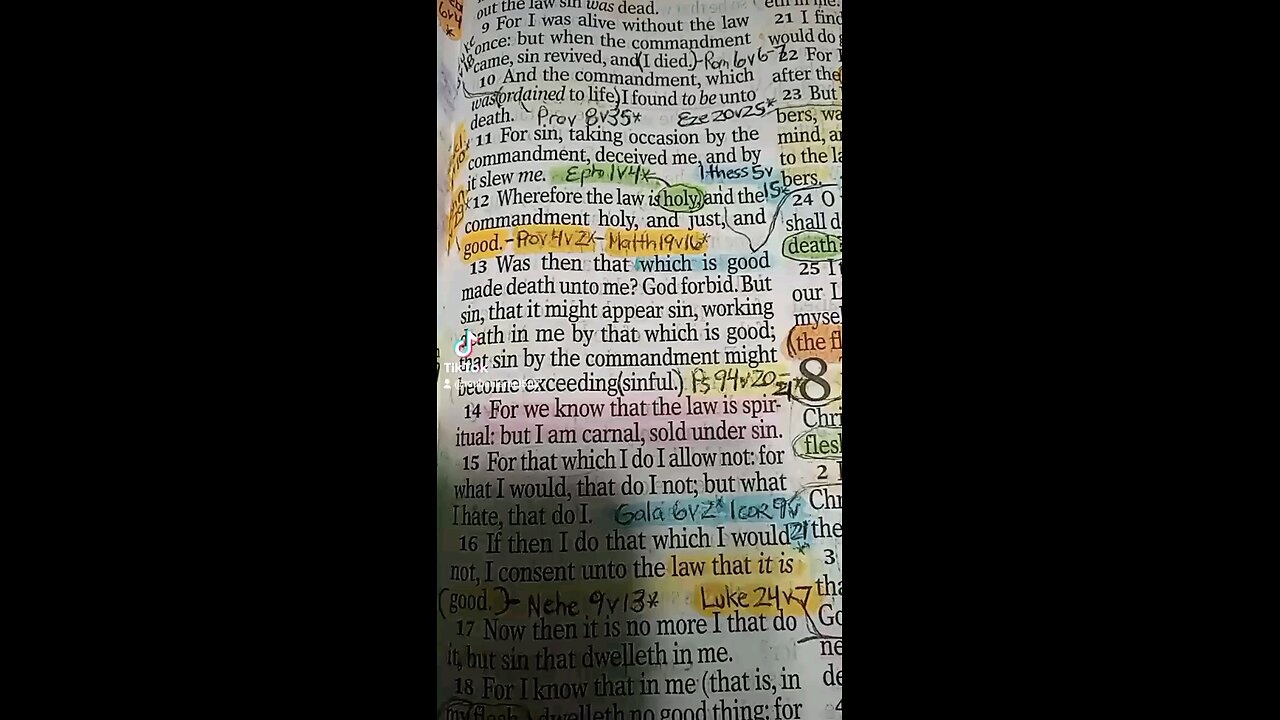 out the law sin was dead.
9 For I was alive without the law
once: but when the commandment
came, sin revived, and (I died.)-Rom 6v6-7
10 And the commandment, which
was (ordained to life) I found to be unto
death. Prov 8v35* Eze 20v25*
11 For sin, taking occasion by the
commandment, deceived me, and by
it slew me. Eph 1v4* 1thess 5v
15*
12 Wherefore the law is holy, and the
commandment holy, and just, and
good. - Prov 4v2* - Matth 19v16*
13 Was then that which is good
made death unto me? God forbid. But
sin, that it might appear sin, working
death in me by that which is good;
that sin by the commandment might
become exceeding (sinful.) Ps 94v20-
21*
14 For we know that the law is spir-
itual: but I am carnal, sold under sin.
15 For that which I do I allow not: for
what I would, that do I not; but what
I hate, that do I. Gala 6v2* 1cor 9v
21*
16 If then I do that which I would
not, I consent unto the law that it is
(good.)- Nehe 9v13* Luke 24v7
17 Now then it is no more I that do
it, but sin that dwelleth in me.
18 For I know that in me (that is, in
my flesh,) dwelleth no good thing: for
TikTok
eth in me.
21 I find
would do
22 For
after the
23 But
bers, wa
mind, a
to the la
bers.
24 O
shall d
death
25 I
our L
mysel
(the fl
8
Chri
flesh
2
Chr
the
3
tha
Go
ne
de
4